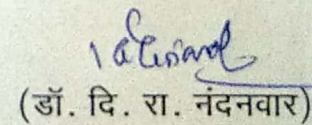 (डॉ. दि. रा. नंदनवार)